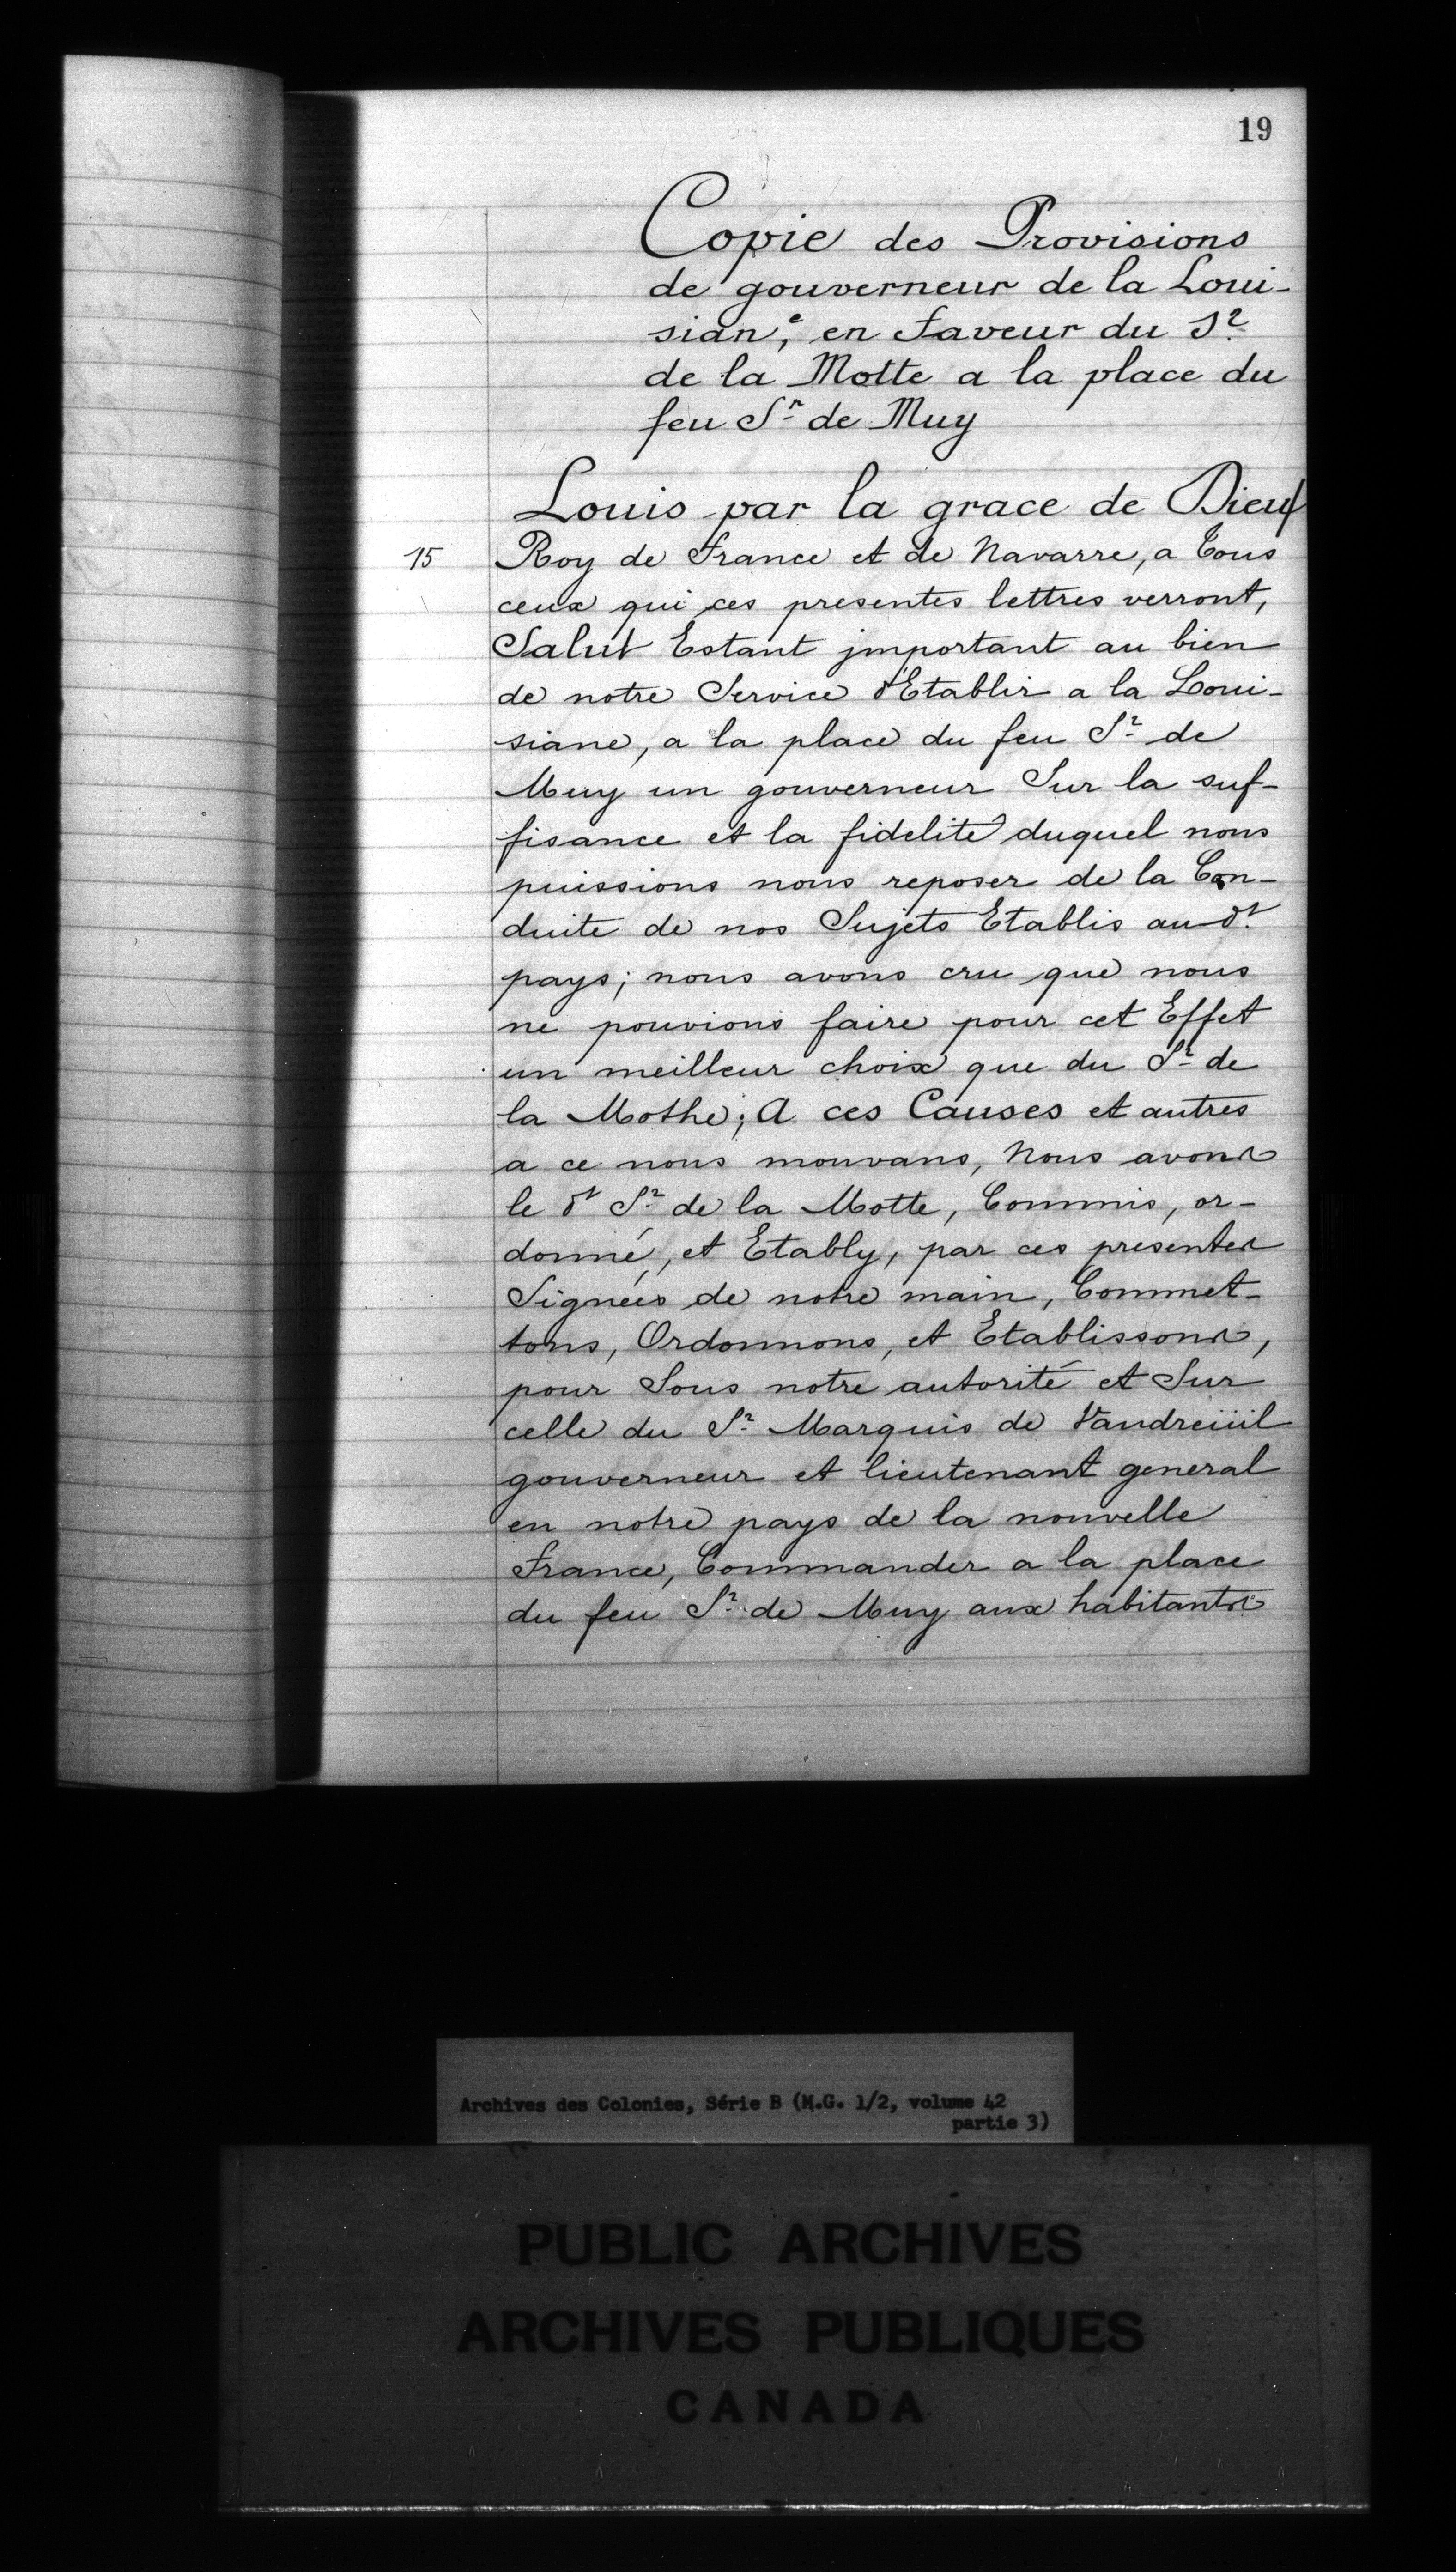 19
Copie des Provisions
de gouverneur de la Loui-
sian,e en faveur du Sr.
de la Motte a la place du
feu Sr de Muy
Louis par la grace de Dieu
15
Roy de France et de Navarre, a tous
ceux qui ces presentes lettres verront,
Salut Estant jmportant au bien
de notre Service d'Etablir a la Loui-
siane, a la place du feu Sr de
Muy un gouverneur Sur la suf-
fisance et la fidelité duquel nous
puissions nous reposer de la Con-
duite de nos Sujets Etablis au dt.
pays; nous avons cru que nous
ne pouvions faire pour cet Effet
un meilleur choix que du Sr de
la Mothe; A ces Causes et autres
a ce nous mouvans, Nous avons
le dt Sr de la Motte, Commis, or-
donné, et Etably, par ces presentes
Signées de notre main, Commet-
tons, Ordonnons, et Etablissons,
pour Sous notre autorité et Sur
celle du Sr Marquis de Vaudreüil
gouverneur et lieutenant general
en notre pays de la nouvelle
France, Commander a la place
du feu Sr de Muy aux habitants
Archives des Colonies, Série B (M.G. 1/2, volume 42
partie 3)
PUBLIC ARCHIVES
ARCHIVES PUBLIQUES
CANADA